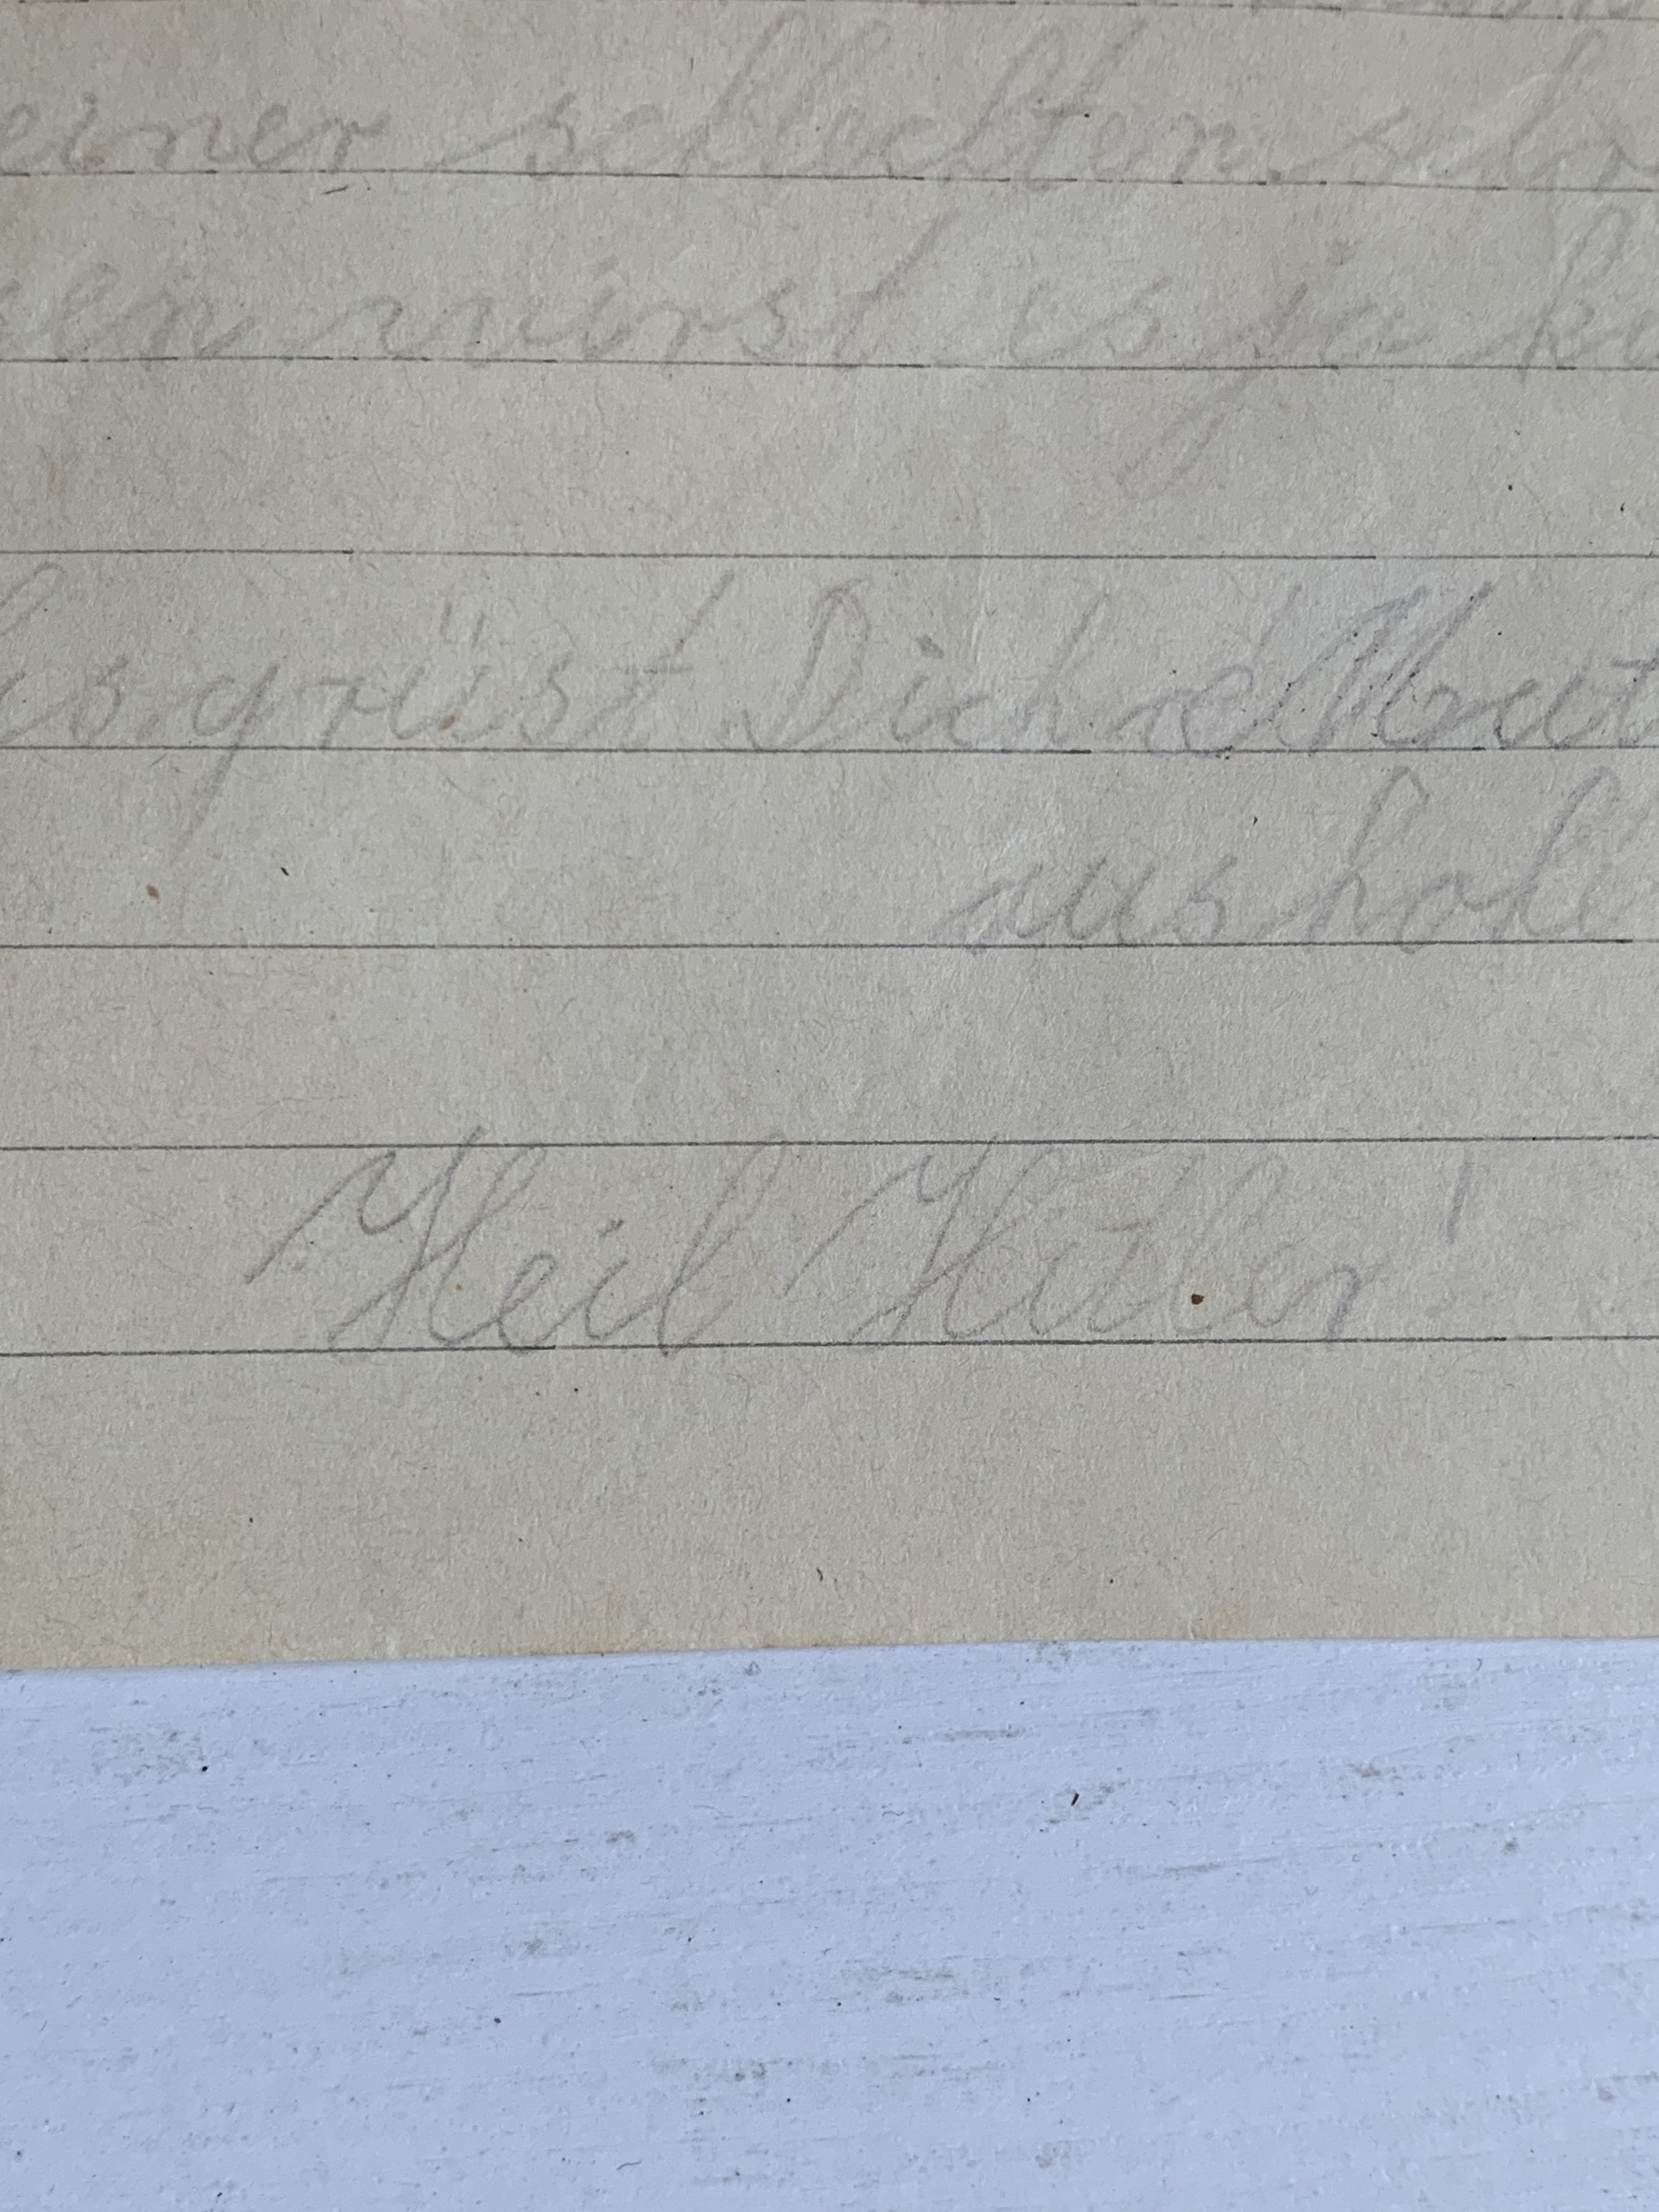 einer schlechten schr
en wirst es ja k
es grüst Dich d Mut
aus hol
Heil Hitler!